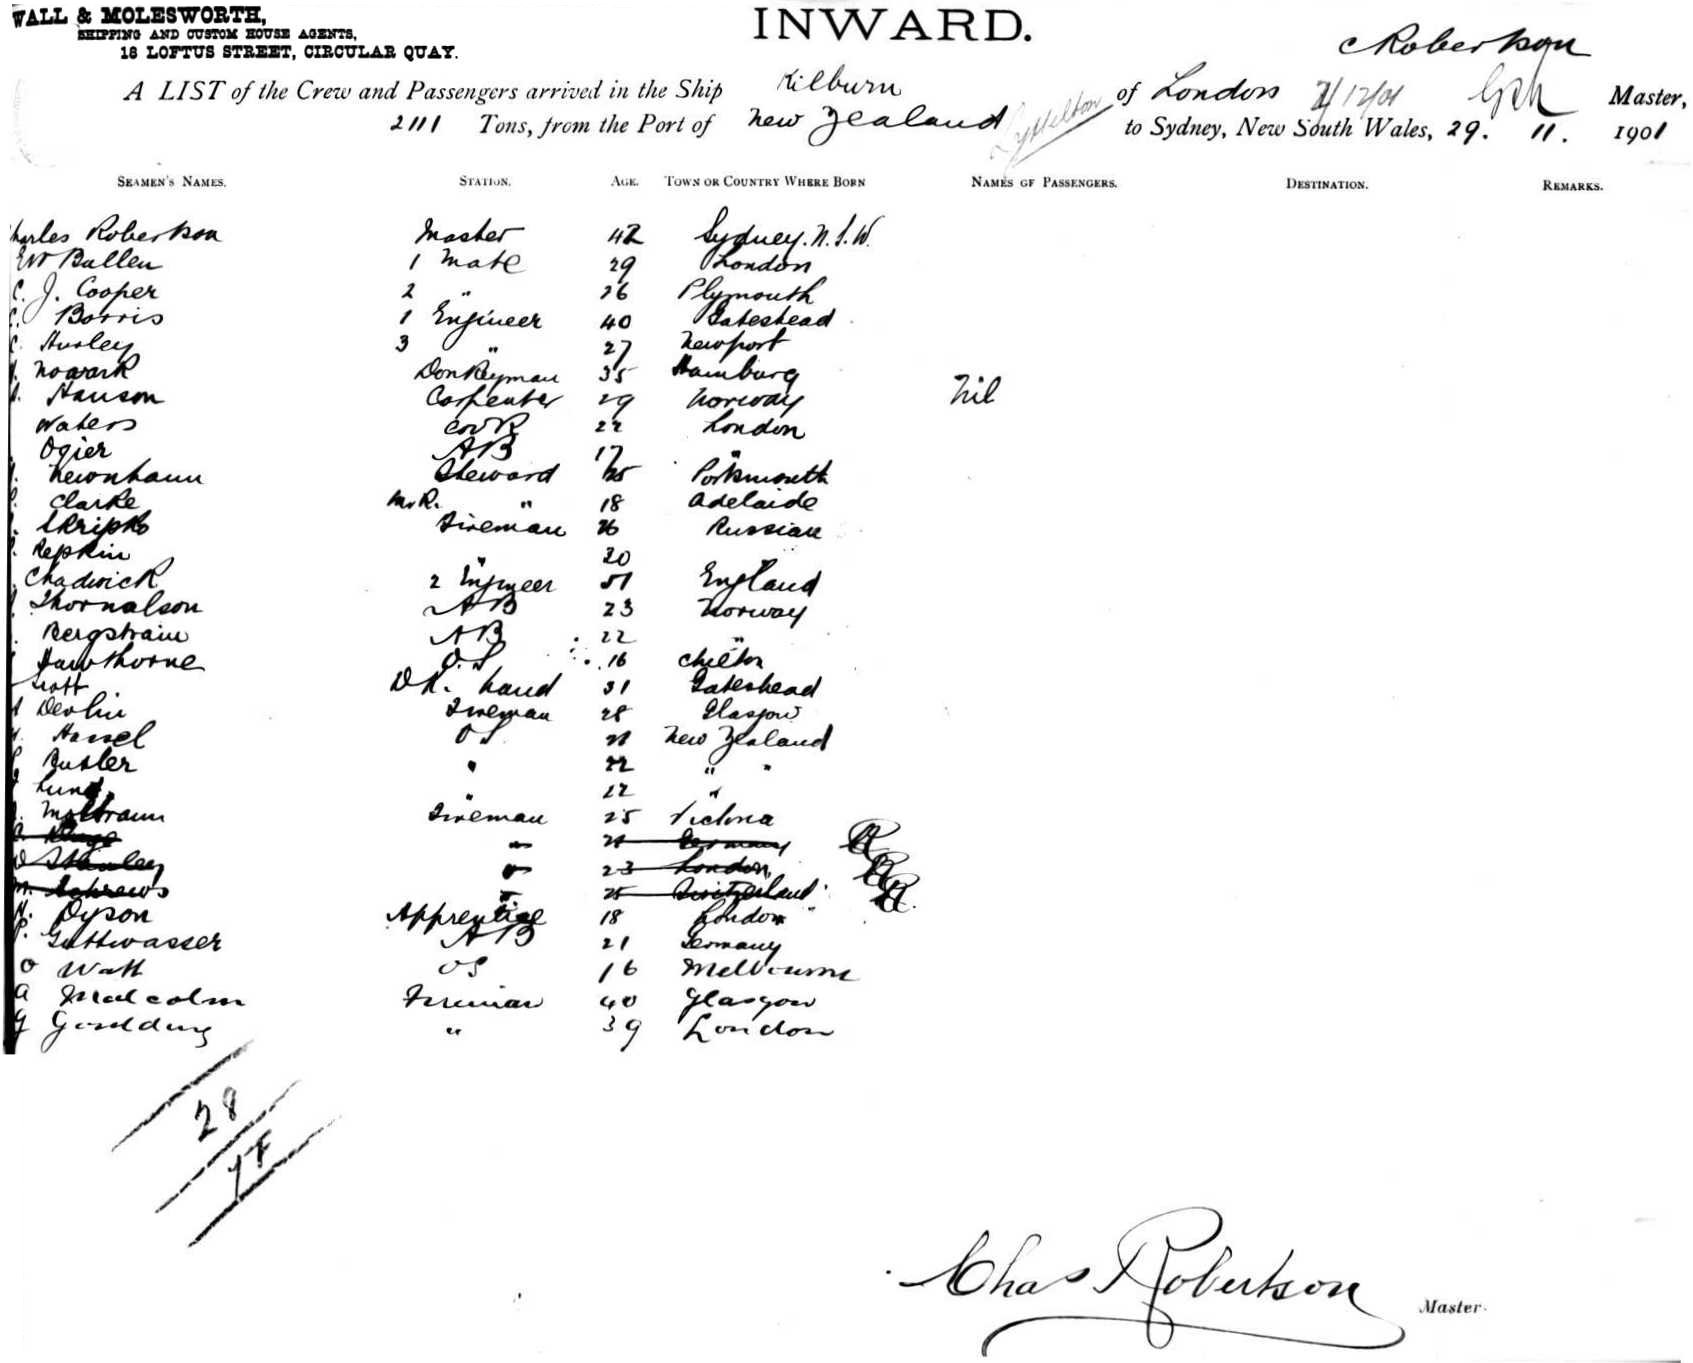 WALL & MOLESWORTH,
SHIPPING AND CUSTOM HOUSE AGENTS,
18 LOFTUS STREET, CIRCULAR QUAY.
INWARD.
C Robertson
A LIST of the Crew and Passengers arrived in the Ship Kilburn of London 2/12/01 Master,
2111 Tons, from the Port of New Zealand Lyttelton to Sydney, New South Wales, 29. 11. 1901
SEAMEN'S NAMES. STATION. AGE. TOWN OR COUNTRY WHERE BORN NAMES OF PASSENGERS. DESTINATION. REMARKS.
Charles Robertson Master 42 Sydney. N.S.W.
Bullen 1 Mate 29 London
C. J. Cooper 2 " 26 Plymouth
Borris 1 Engineer 40 Gateshead
Hurley 3 " 27 Newport
Nowark Donkeyman 35 Hamburg
Hanson Carpenter 29 Norway Nil
Waters Cook 22 London
Ogier AB 17 "
Newnham Steward 25 Portsmouth
Clarke M.R. " 18 Adelaide
Skripko Fireman 26 Russian
Repkin " 30 "
Chadwick 2 Engineer 51 England
Thornalson AB 23 Norway
Bergstrain AB 22 "
Hawthorne O.S 16
Scott DK. hand 31 Gateshead
Devlin Fireman 28 Glasgow
Hassel OS 21 New Zealand
Butler " 22 " "
Lund " 22 "
Fireman 25 Victoria
" 21 Germany
Stanley " 23 London
M. Andrews " 25 Switzerland
H. Dyson Apprentice 18 London
P. Guttwasser AB 21 Germany
O Watt OS 16 Melbourne
A Malcolm Fireman 40 Glasgow
G Goulding " 39 London
28
Chas Robertson
Master.